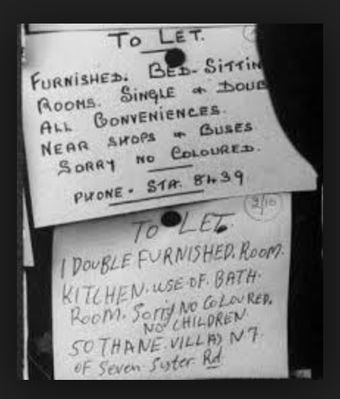 TO LET.
FURNISHED. BED-SITTIN
ROOMS. SINGLE & DOUB
ALL CONVENIENCES.
NEAR SHOPS & BUSES
SORRY NO COLOURED.
PHONE - STA. 8439
2/10
TO LET.
1 DOUBLE FURNISHED. ROOM.
KITCHEN. USE OF. BATH.
ROOM. Sorry No COLOURED.
NO CHILDREN.
SOTHANE. VILLAS N7.
OF Seven Sister Rd